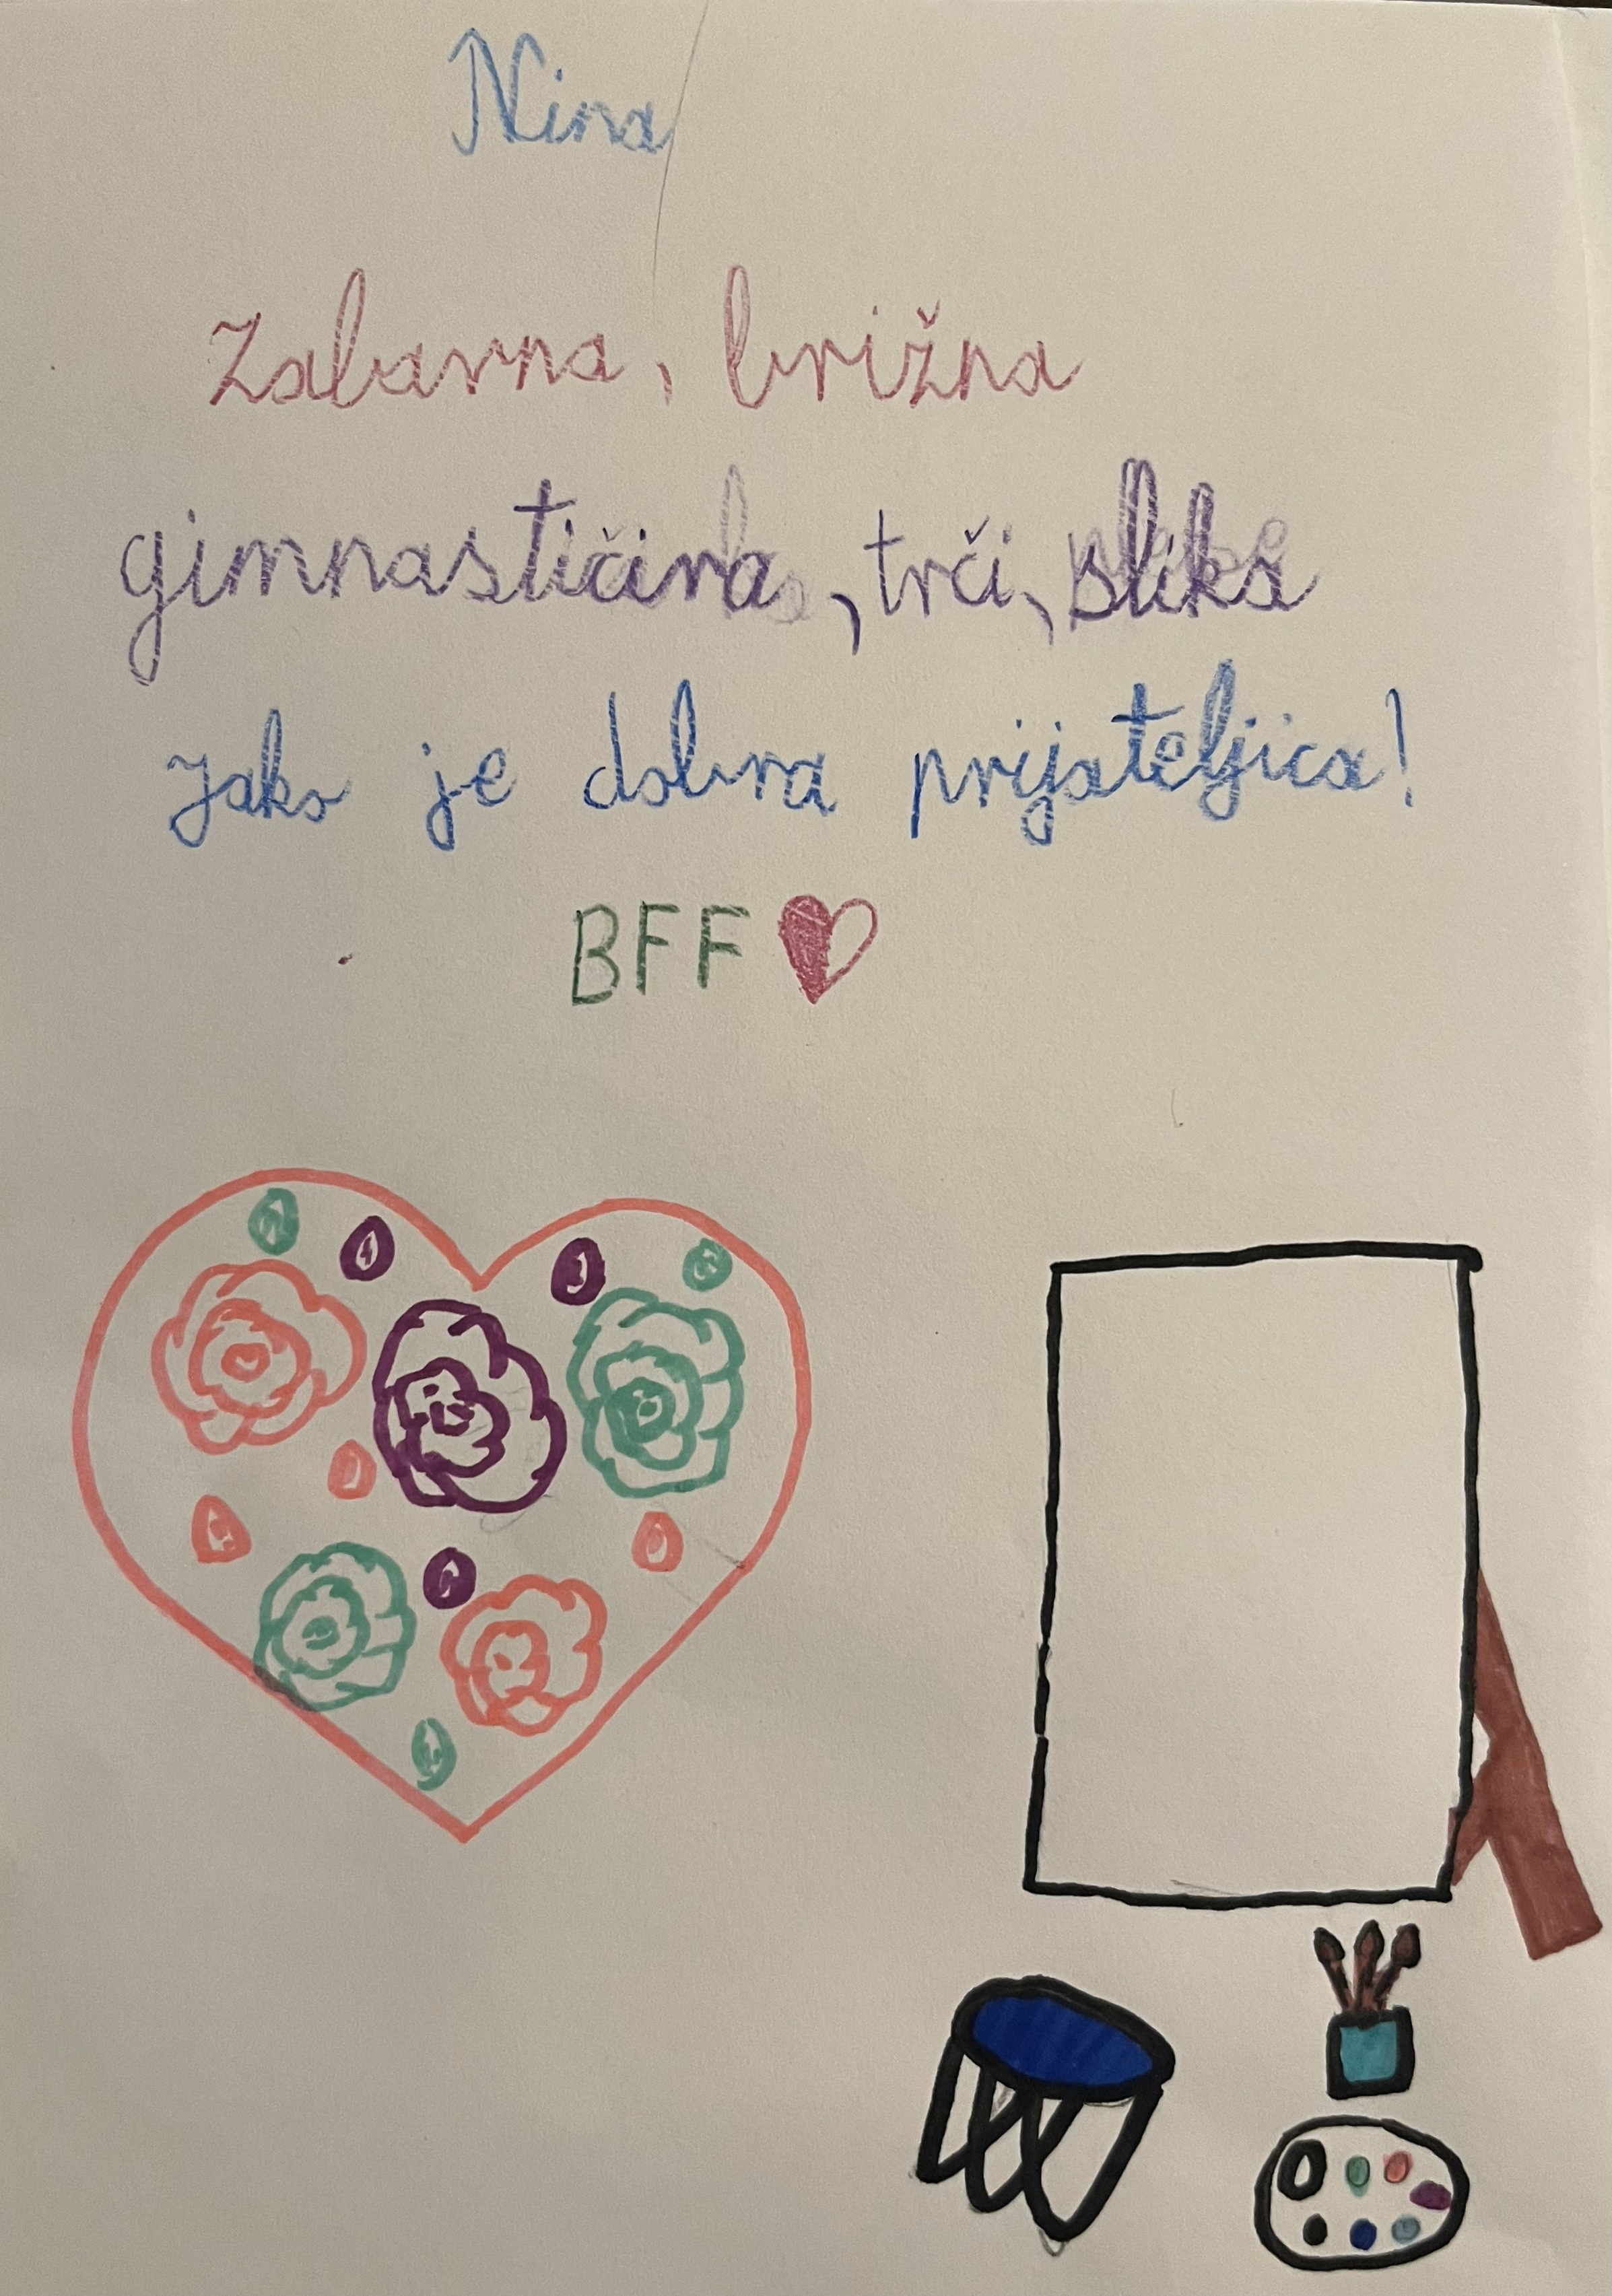 Nina
Zabavna, brižna
gimnastičira, trči, slika
Jako je dobra prijateljica!
BFF